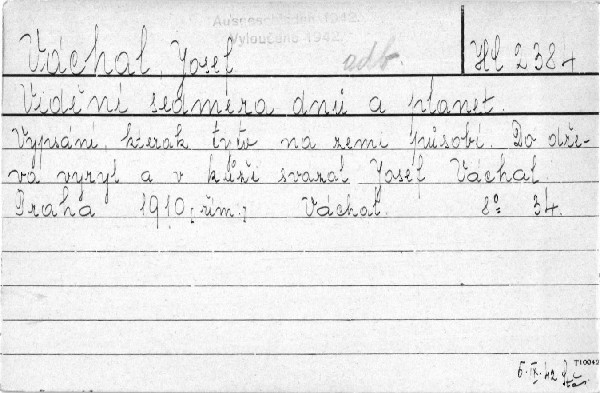 Ausgeschieden 1942.
Vyloučeno 1942.
Váchal, Josef
adb.
HL 2384
Vidění sedmera dnů a planet.
Vypsání, kterak tyto na zemi působí. Do dře-
va vyryl a v kůži svázal Josef Váchal.
Praha 1910 [řím.] Váchal. 8° 34.
T10042
6. IX. 42